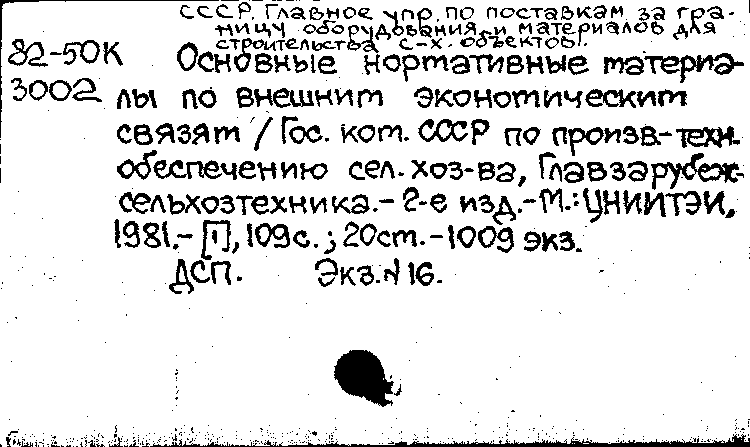 СССР. Главное упр. по поставкам за гра-
ницу оборудования и материалов для
строительства с-х. объектов.
82-50К Основные нормативные материа-
3002 лы по внешним экономическим
связям / Гос. ком. СССР по произв-техн.
обеспечению сел. хоз-ва, Главзарубеж-
сельхозтехника.- 2-е изд.-М.: ЦНИИТЭИ,
1981.- [1], 109с.; 20см.-1009 экз.
ДСП. Экз.N 16.